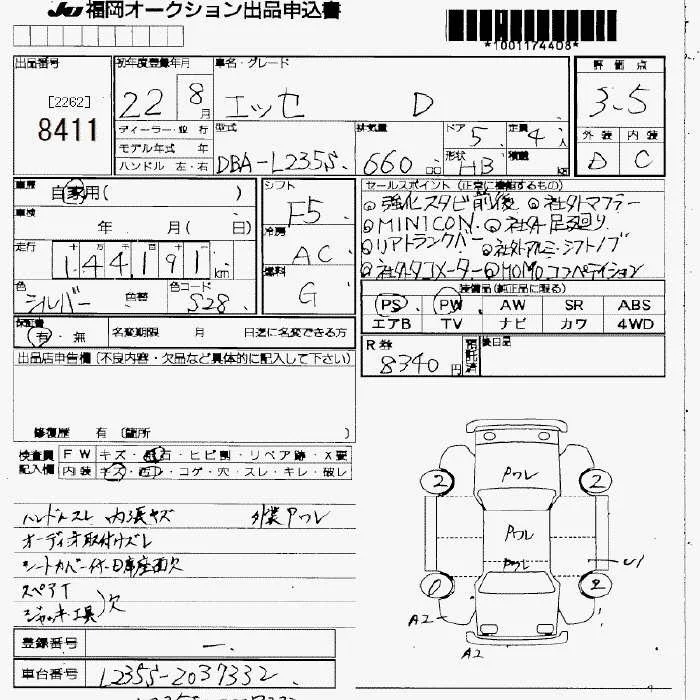 JU 福岡オークション出品申込書
*1001174408*
出品番号
[2262]
8411
初年度登録年月 22年 8月
ディーラー・並行
モデル年式 年
ハンドル 左・右
車名・グレード
エッセ D
型式 DBA-L235S
排気量 660 cc
ドア 5
形状 HB
定員 4人
積載 kg
評価点
3.5
外装 内装
D C
車歴 自家用( )
車検 年 月( 日)
走行 144,191 km
色 シルバー 色替 色コード S28
シフト F5
冷房 AC
燃料 G
セールスポイント (正常に機能するもの)
◎強化スタビ前後 ◎社外マフラー
◎MINICON ◎社外足廻り
◎リアトランクバー ◎社外アルミ・シフトノブ
◎社外タコメーター ◎MOMOコンペティション
装備品(純正品に限る)
PS PW AW SR ABS
エアB TV ナビ カワ 4WD
保証書 有・無 名変期限 月 日迄に名変できる方
R券 8340円 預託済 後日品
出品店申告欄(不良内容・欠品など具体的に記入して下さい)
修復歴 有 (箇所 )
検査員記入欄
FW キズ・飛石・ヒビ割・リペア跡・X要
内装 キズ・コゲ・穴・スレ・キレ・破レ
ハンドルスレ 内張キズ 外装アワレ
オーディオ取付ケズレ
シートカバー付
スペアT
ジャッキ工具)欠
アワレ
アワレ
アワレ
2 2
0 2
U1
A2 1
A2
登録番号 ー
車台番号 L235S-2037332